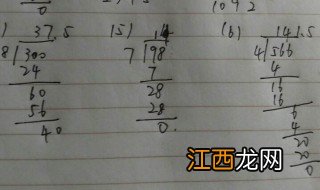 0
1092
) 37.5
8 300
24
60
56
40
15) 14
7 98
7
28
28
0.
(6) 141.5
4 566
4
16
16
6
4
20
20
0
江西龙网